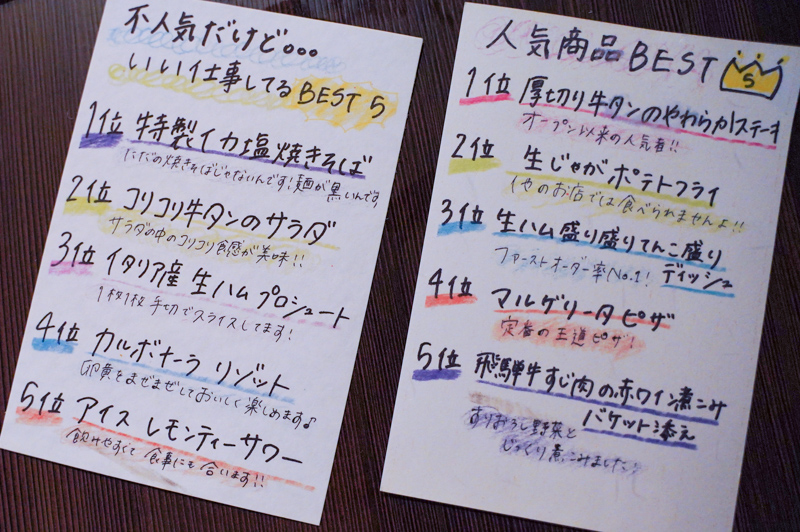 不人気だけど。。。
いい仕事してる BEST 5
1位 特製イカ塩焼きそば
ただの焼きそばじゃないんです!麺が黒いんです
2位 コリコリ牛タンのサラダ
サラダの中のコリコリ食感が美味!!
3位 イタリア産 生ハム プロシュート
1枚1枚 手切でスライスしてます!
4位 カルボナーラ リゾット
卵黄をまぜまぜしておいしく楽しめます♪
5位 アイス レモンティーサワー
飲みやすくて 食事にも 合います!!
人気商品BEST 5
1位 厚切り牛タンのやわらかステーキ
オープン以来の人気者!!
2位 生じゃがポテトフライ
他のお店では食べられませんよ!!
3位 生ハム盛り盛りてんこ盛り
ファーストオーダー率No.1! ディッシュ
4位 マルゲリータピザ
定番の王道ピザ!
5位 飛騨牛すじ肉の赤ワイン煮こみ
バケット添え
すりおろし野菜と
じっくり煮こみました